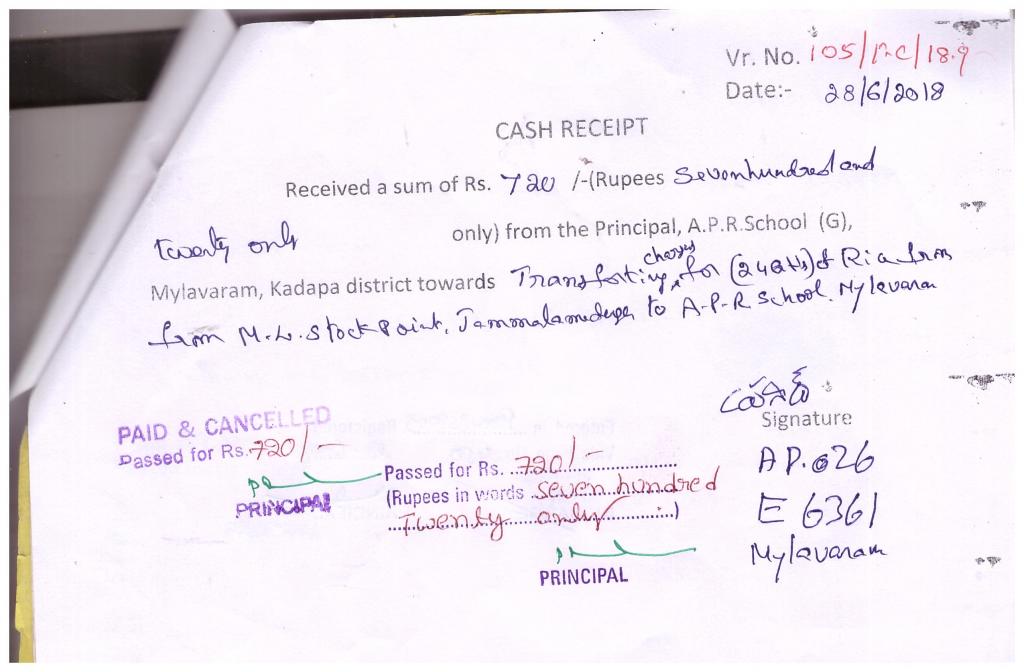 Vr. No. 105/PC/18.9
Date:- 28/6/2018
CASH RECEIPT
Received a sum of Rs. 720 /-(Rupees Sevenhundred and
twenty only only) from the Principal, A.P.R.School (G),
charges
Mylavaram, Kadapa district towards Transporting for (24 Qtls) of from
from M.L.Stock Point, Jammalamadugu to A.P.R School, Mylavaram
Signature
PAID & CANCELLED
Passed for Rs. 720/-
PRINCIPAL
Passed for Rs. 720/-
(Rupees in words seven hundred
Twenty only)
PRINCIPAL
AP.026
E 6361
Mylavaram